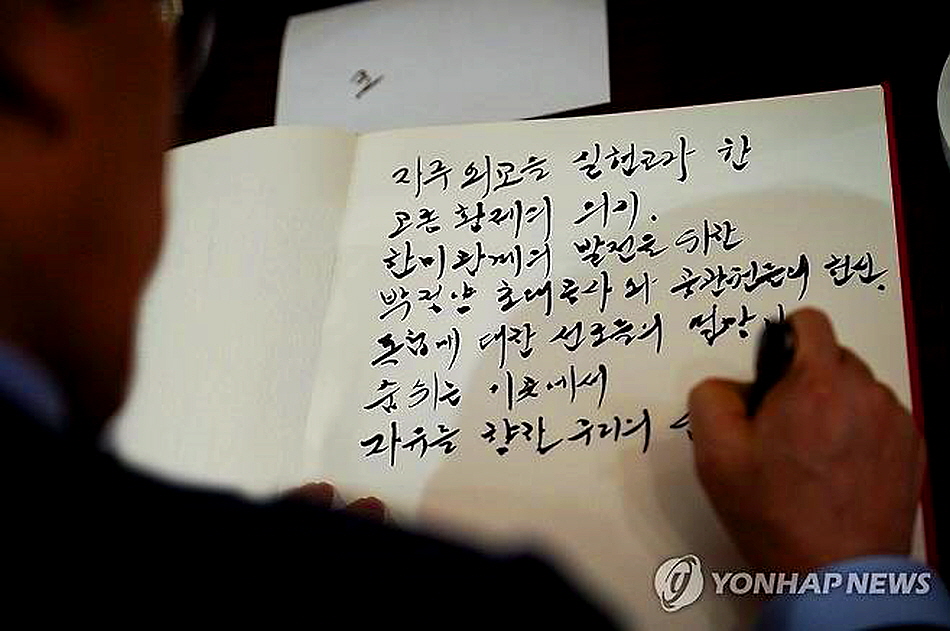 자주 외교를 실현코자 한
고종 황제의 의지.
한미관계의 발전을 위한
박정양 초대공사와 공관원들의 헌신.
독립에 대한 선조들의 열망이
숨쉬는 이곳에서
자유를 향한 우리의
YONHAP NEWS